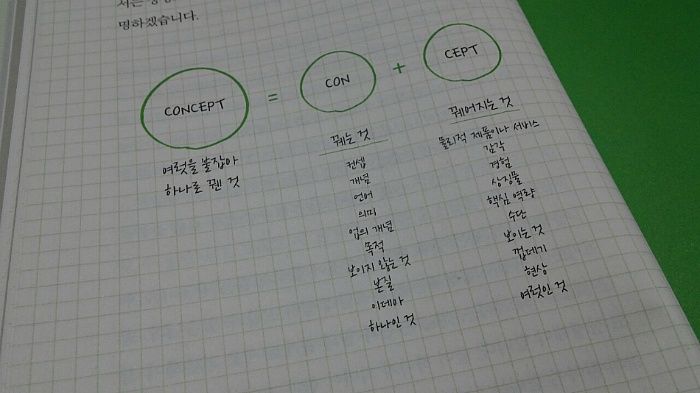 명하겠습니다.
CONCEPT = CON + CEPT
여럿을 붙잡아
하나로 꿴 것
꿰는 것
컨셉
개념
언어
의미
업의 개념
목적
보이지 않는 것
본질
이데아
하나인 것
꿰어지는 것
물리적 제품이나 서비스
감각
경험
상징물
핵심 역량
수단
보이는 것
껍데기
현상
여럿인 것